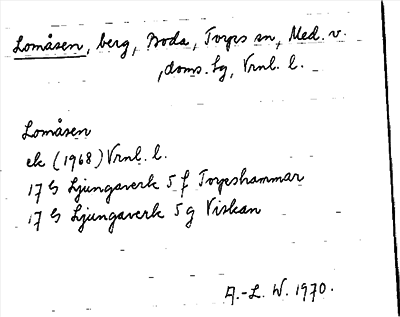 Lomåsen, berg, Boda, Torps sn, Med. v.
, doms. Lg, Vrnl. l.
Lomåsen
ek (1968) Vrnl. l.
17 G Ljungaverk 5 f Torpshammar
17 G Ljungaverk 5 g Viskan
A.-L. W. 1970.